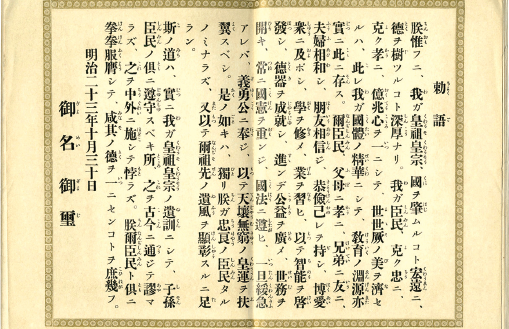 勅語
朕惟フニ、我ガ皇祖皇宗、國ヲ肇ムルコト宏遠ニ、
德ヲ樹ツルコト深厚ナリ。我ガ臣民、克ク忠ニ、
克ク孝ニ、億兆心ヲ一ニシテ、世世厥ノ美ヲ濟セ
ルハ、此レ我ガ國體ノ精華ニシテ、敎育ノ淵源亦
實ニ此ニ存ス。爾臣民、父母ニ孝ニ、兄弟ニ友ニ、
夫婦相和シ、朋友相信ジ、恭儉己レヲ持シ、博愛
衆ニ及ボシ、學ヲ修メ、業ヲ習ヒ、以テ智能ヲ啓
發シ、德器ヲ成就シ、進ンデ公益ヲ廣メ、世務ヲ
開キ、常ニ國憲ヲ重ンジ、國法ニ遵ヒ、一旦緩急
アレバ、義勇公ニ奉ジ、以テ天壤無窮ノ皇運ヲ扶
翼スベシ。是ノ如キハ、獨リ朕ガ忠良ノ臣民タル
ノミナラズ、又以テ爾祖先ノ遺風ヲ顯彰スルニ足
ラン。
斯ノ道ハ、實ニ我ガ皇祖皇宗ノ遺訓ニシテ、子孫
臣民ノ俱ニ遵守スベキ所、之ヲ古今ニ通ジテ謬マ
ラズ、之ヲ中外ニ施シテ悖ラズ。朕爾臣民ト俱ニ
拳拳服膺シテ、咸其ノ德ヲ一ニセンコトヲ庶幾フ。
明治二十三年十月三十日
御名御璽